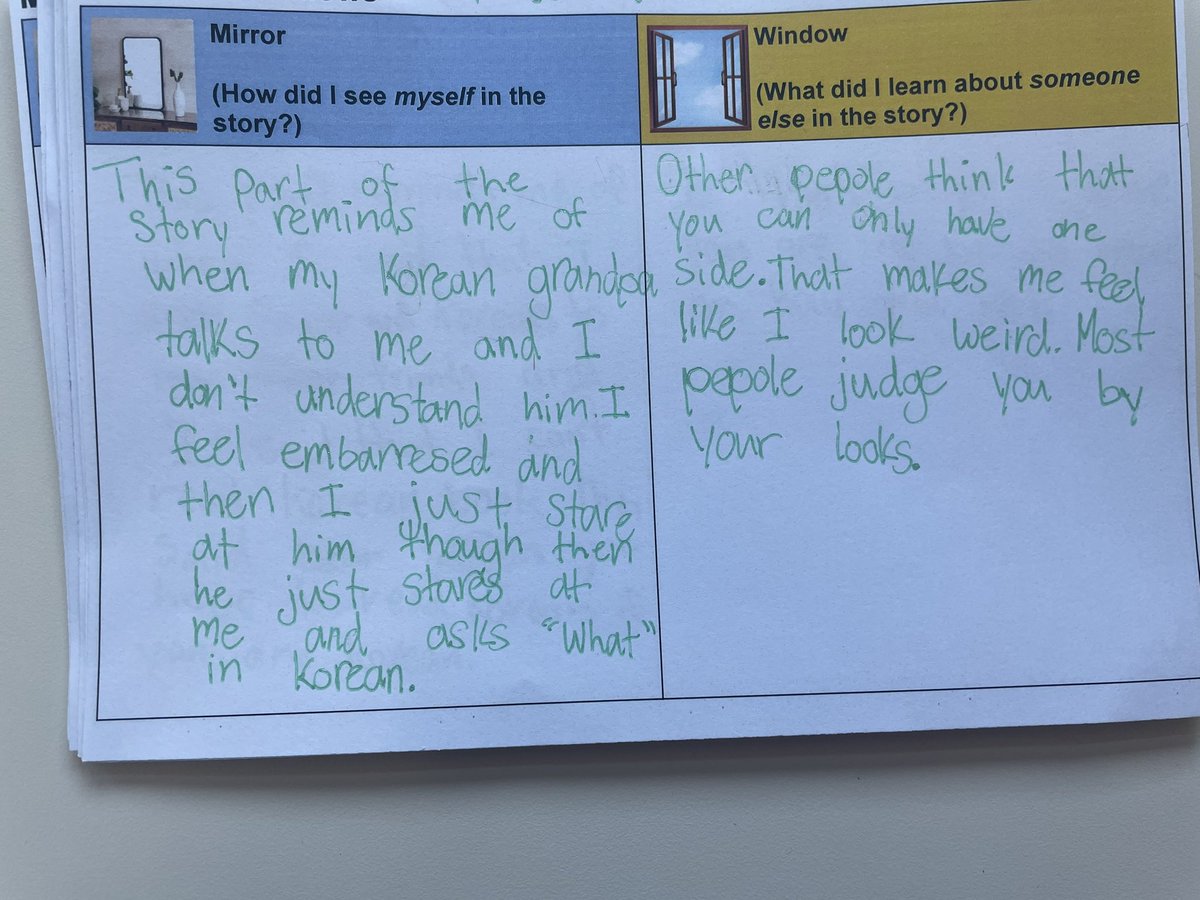 Mirror
(How did I see myself in the
story?)
This part of the
story reminds me of
when my Korean grandpa
talks to me and I
don't understand him. I
feel embarresed and
then I just stare
at him though then
he just stares at
me and asks "What"
in Korean.
Window
(What did I learn about someone
else in the story?)
Other pepole think that
you can only have one
side. That makes me feel
like I look weird. Most
pepole judge you by
your looks.